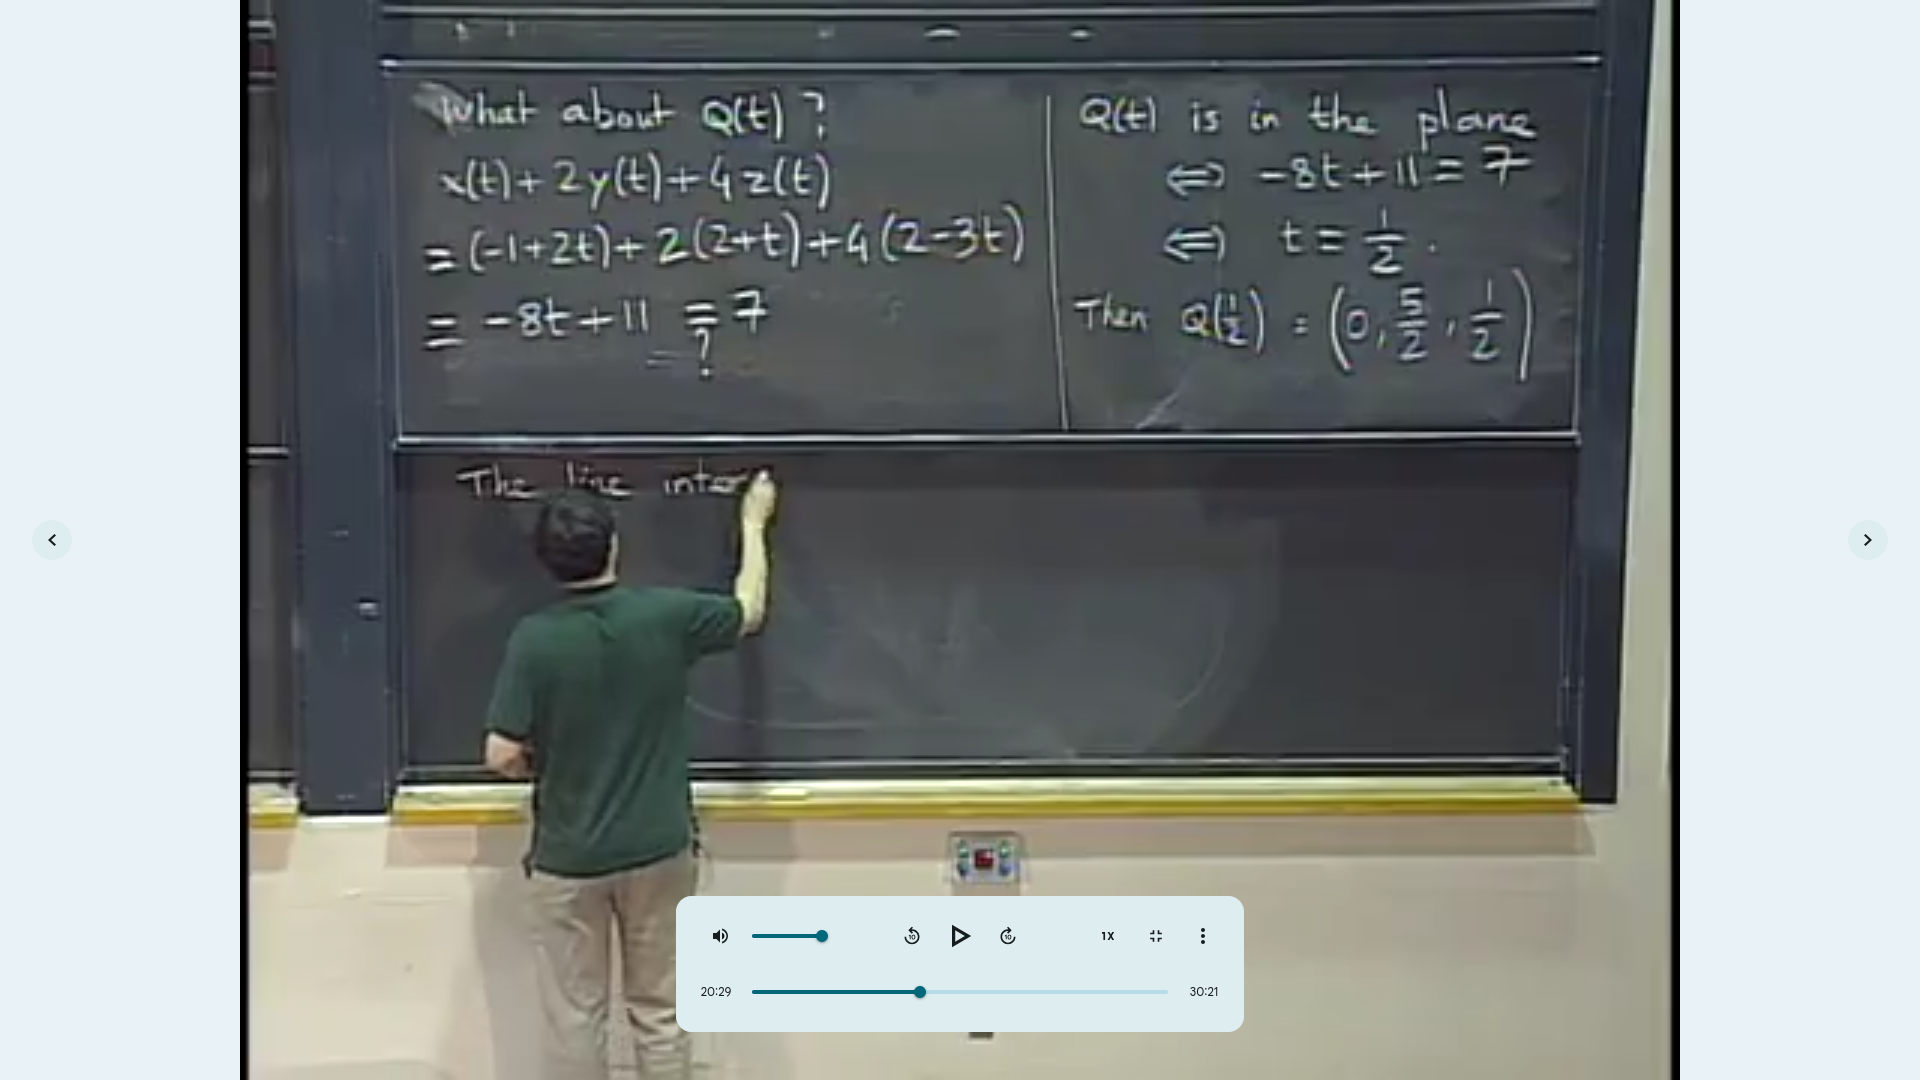 What about Q(t) ?
x(t) + 2y(t) + 4z(t)
= (-1+2t) + 2(2+t) + 4(2-3t)
= -8t + 11 = 7
?
Q(t) is in the plane
⇔ -8t + 11 = 7
⇔ t = 1/2 .
Then Q(1/2) = (0, 5/2, 1/2)
The line inter
10
10
1X
20:29
30:21